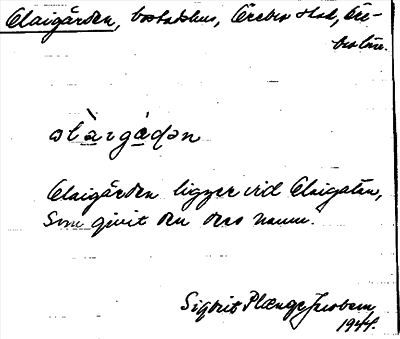 Olaigården, bostadshus, Örebro stad, Öre-
bro län.
Olaigården ligger vid Olaigatan,
som givit den dess namn.
Sigbrit Plænge Jacobson,
1944.